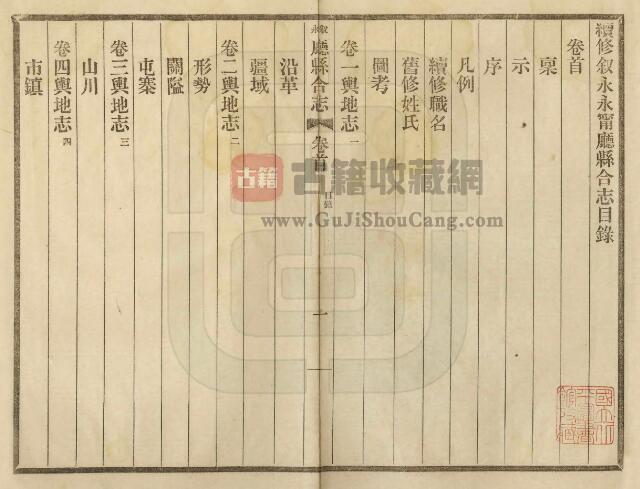 續修叙永永甯廳縣合志目錄
卷首
稟
示
序
凡例
續修職名
舊修姓氏
圖考
卷一輿地志一
叙永廳縣合志
卷首
目錄
一
沿革
疆域
卷二輿地志二
形勢
關隘
屯寨
卷三輿地志三
山川
卷四輿地志四
市鎮
古籍
古籍收藏網
www.GuJiShouCang.com